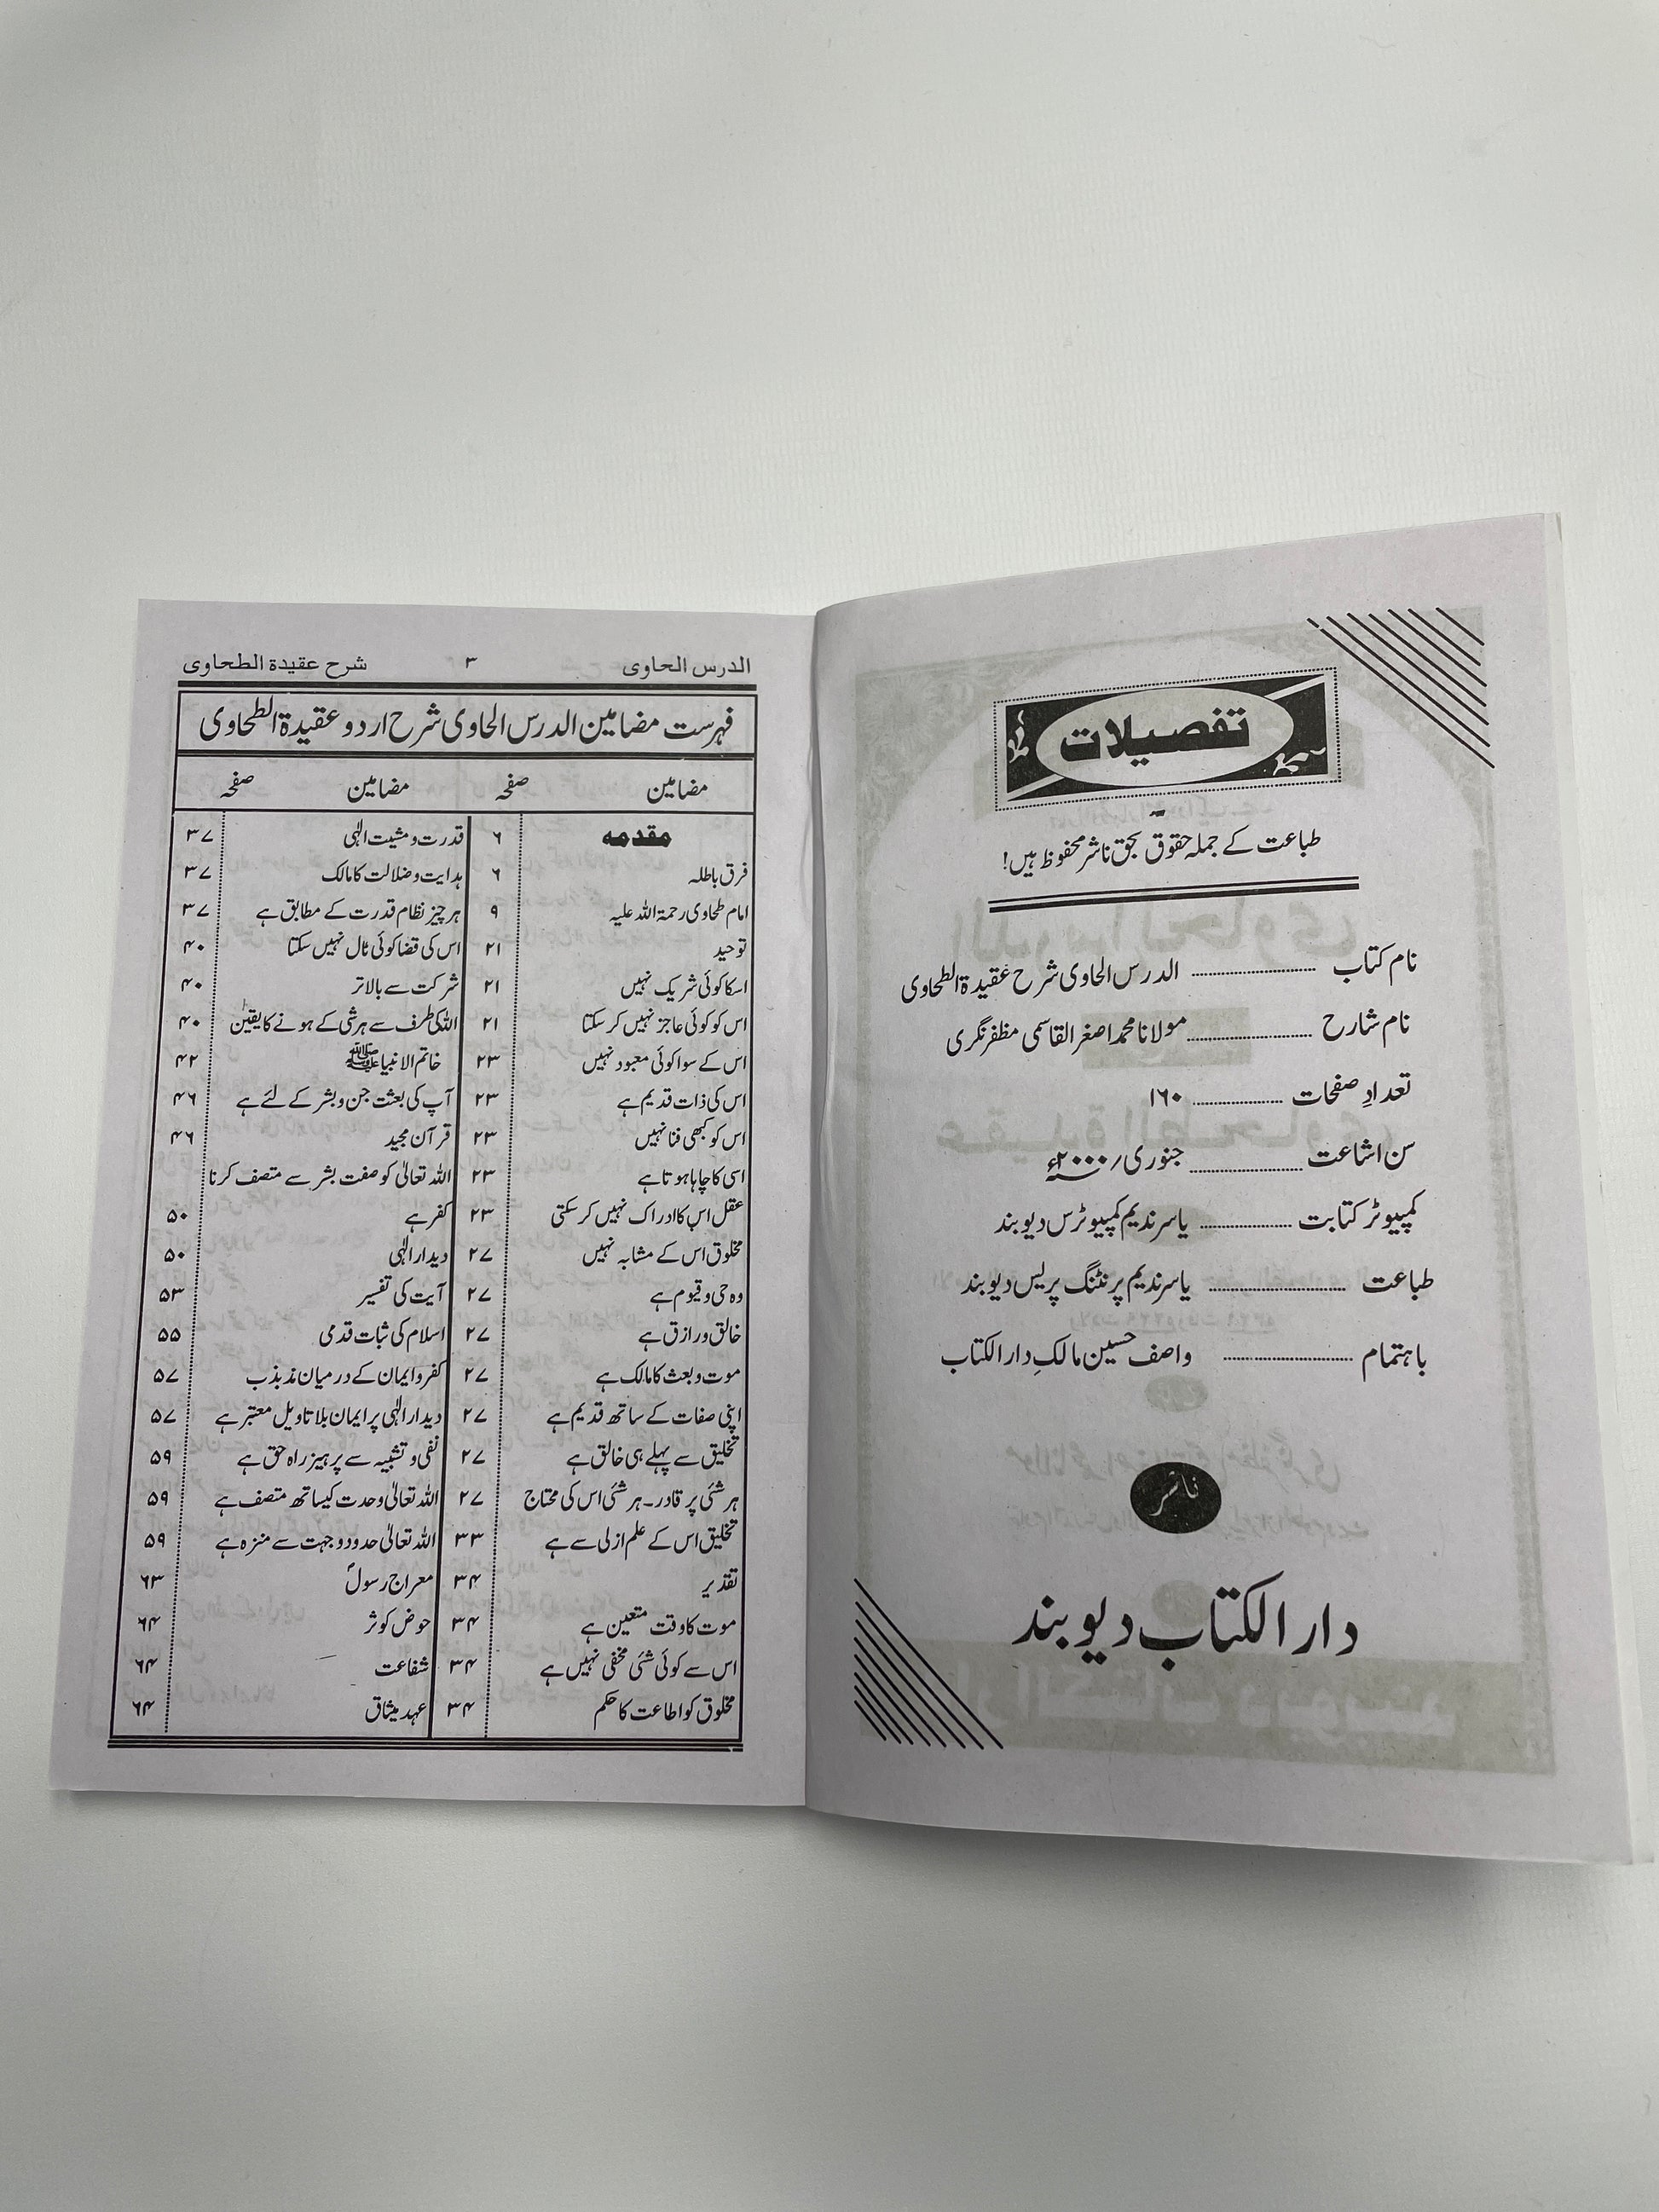 تفصیلات
طباعت کے جملہ حقوق بحق ناشر محفوظ ہیں!
نام کتاب ............ الدرس الحاوی شرح عقیدۃ الطحاوی
نام شارح ............ مولانا محمد اصغر القاسمی مظفرنگری
تعدادِ صفحات ............ ۱۶۰
سن اشاعت ............ جنوری / ۲۰۰۰ء
کمپیوٹر کتابت ............ یاسر ندیم کمپیوٹرس دیوبند
طباعت ............ یاسر ندیم پرنٹنگ پریس دیوبند
باہتمام ............ واصف حسین مالکِ دار الکتاب
ناشر
دار الکتاب دیوبند
الدرس الحاوی ۳ شرح عقیدة الطحاوی
فہرست مضامین الدرس الحاوی شرح اردو عقیدۃ الطحاوی
مضامین صفحہ مضامین صفحہ
مقدمه ۶ قدرت و مشیت الٰہی ۳۷
فرق باطلہ ۶ ہدایت و ضلالت کا مالک ۳۷
امام طحاوی رحمۃ اللہ علیہ ۹ ہر چیز نظام قدرت کے مطابق ہے ۳۷
توحید ۲۱ اس کی قضا کوئی ٹال نہیں سکتا ۴۰
اسکا کوئی شریک نہیں ۲۱ شرکت سے بالاتر ۴۰
اس کو کوئی عاجز نہیں کر سکتا ۲۱ اللہ کی طرف سے ہر شی کے ہونے کا یقین ۴۰
اس کے سوا کوئی معبود نہیں ۲۳ خاتم الانبیاء ﷺ ۴۲
اس کی ذات قدیم ہے ۲۳ آپ کی بعثت جن و بشر کے لئے ہے ۴۶
اس کو کبھی فنا نہیں ۲۳ قرآن مجید ۴۶
اسی کا چاہا ہوتا ہے ۲۳ اللہ تعالیٰ کو صفت بشر سے متصف کرنا
عقل اس کا ادراک نہیں کر سکتی ۲۳ کفر ہے ۵۰
مخلوق اس کے مشابہ نہیں ۲۷ دیدار الٰہی ۵۰
وہ حی و قیوم ہے ۲۷ آیت کی تفسیر ۵۳
خالق و رازق ہے ۲۷ اسلام کی ثبات قدمی ۵۵
موت و بعث کا مالک ہے ۲۷ کفر و ایمان کے درمیان مذبذب ۵۷
اپنی صفات کے ساتھ قدیم ہے ۲۷ دیدار الٰہی پر ایمان بلا تاویل معتبر ہے ۵۷
تخلیق سے پہلے ہی خالق ہے ۲۷ نفی و تشبیہ سے پرہیز راہ حق ہے ۵۹
ہر شئی پر قادر۔ ہر شئی اس کی محتاج ۲۷ اللہ تعالیٰ وحدت کیساتھ متصف ہے ۵۹
تخلیق اس کے علم ازلی سے ہے ۳۳ اللہ تعالیٰ حدود و جہت سے منزہ ہے ۵۹
تقدیر ۳۴ معراج رسولؐ ۶۳
موت کا وقت متعین ہے ۳۴ حوض کوثر ۶۴
اس سے کوئی شئی مخفی نہیں ہے ۳۴ شفاعت ۶۴
مخلوق کو اطاعت کا حکم ۳۴ عہد میثاق ۶۴